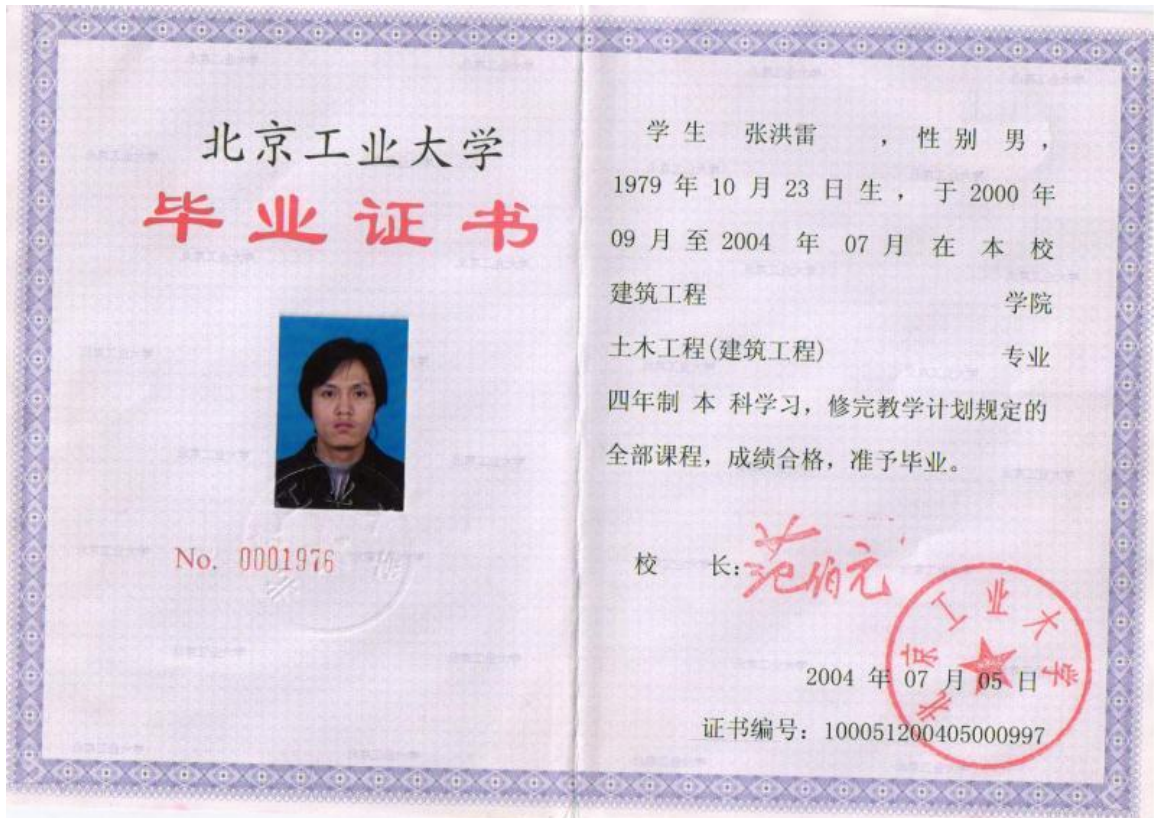 北京工业大学
毕业证书
No. 0001976
学生 张洪雷 ，性别 男，
1979 年 10 月 23 日 生 ， 于 2000 年
09 月 至 2004 年 07 月 在 本 校
建筑工程 学院
土木工程(建筑工程) 专业
四年制 本 科学习，修完教学计划规定的
全部课程，成绩合格，准予毕业。
校 长：范伯元
北京工业大学
2004 年 07 月 05 日
证书编号：100051200405000997